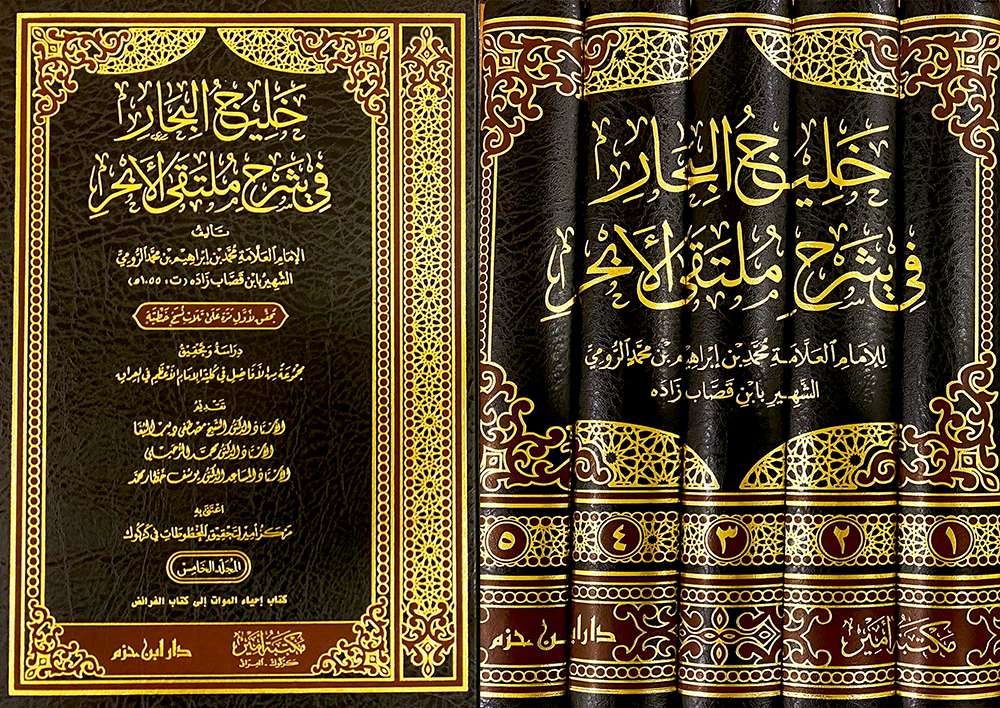 خَلِيجُ البِحَارِ
فِي شَرْحِ مُلتَقَى الأَبْحُرِ
تأليف
الإمام العلّامة محمّد بن إبراهيم بن محمّد الرّومي
الشهير بابن قصّاب زاده (ت: ١٠٥٥هـ)
يحقق لأول مرة على ثلاث نسخ خطية
دراسة وتحقيق
مجموعة من الأفاضل في كلية الإمام الأعظم في العراق
تقديم
الأستاذ الدكتور الشيخ مصطفى ديب البغا
الأستاذ الدكتور محمد الزحيلي
الأستاذ المساعد الدكتور يوسف خطار محمد
اعتنى به
مركز أمير لتحقيق المخطوطات في كركوك
المجلد الخامس
كتاب إحياء الموات إلى كتاب الفرائض
مكتبة أمير
كركوك - العراق
دار ابن حزم
خَلِيجُ البِحَارِ
فِي شَرْحِ مُلتَقَى الأَبْحُرِ
للإمام العلّامة محمّد بن إبراهيم بن محمّد الرّومي
الشهير بابن قصّاب زاده
١ ٢ ٣ ٤ ٥
مكتبة أمير
دار ابن حزم